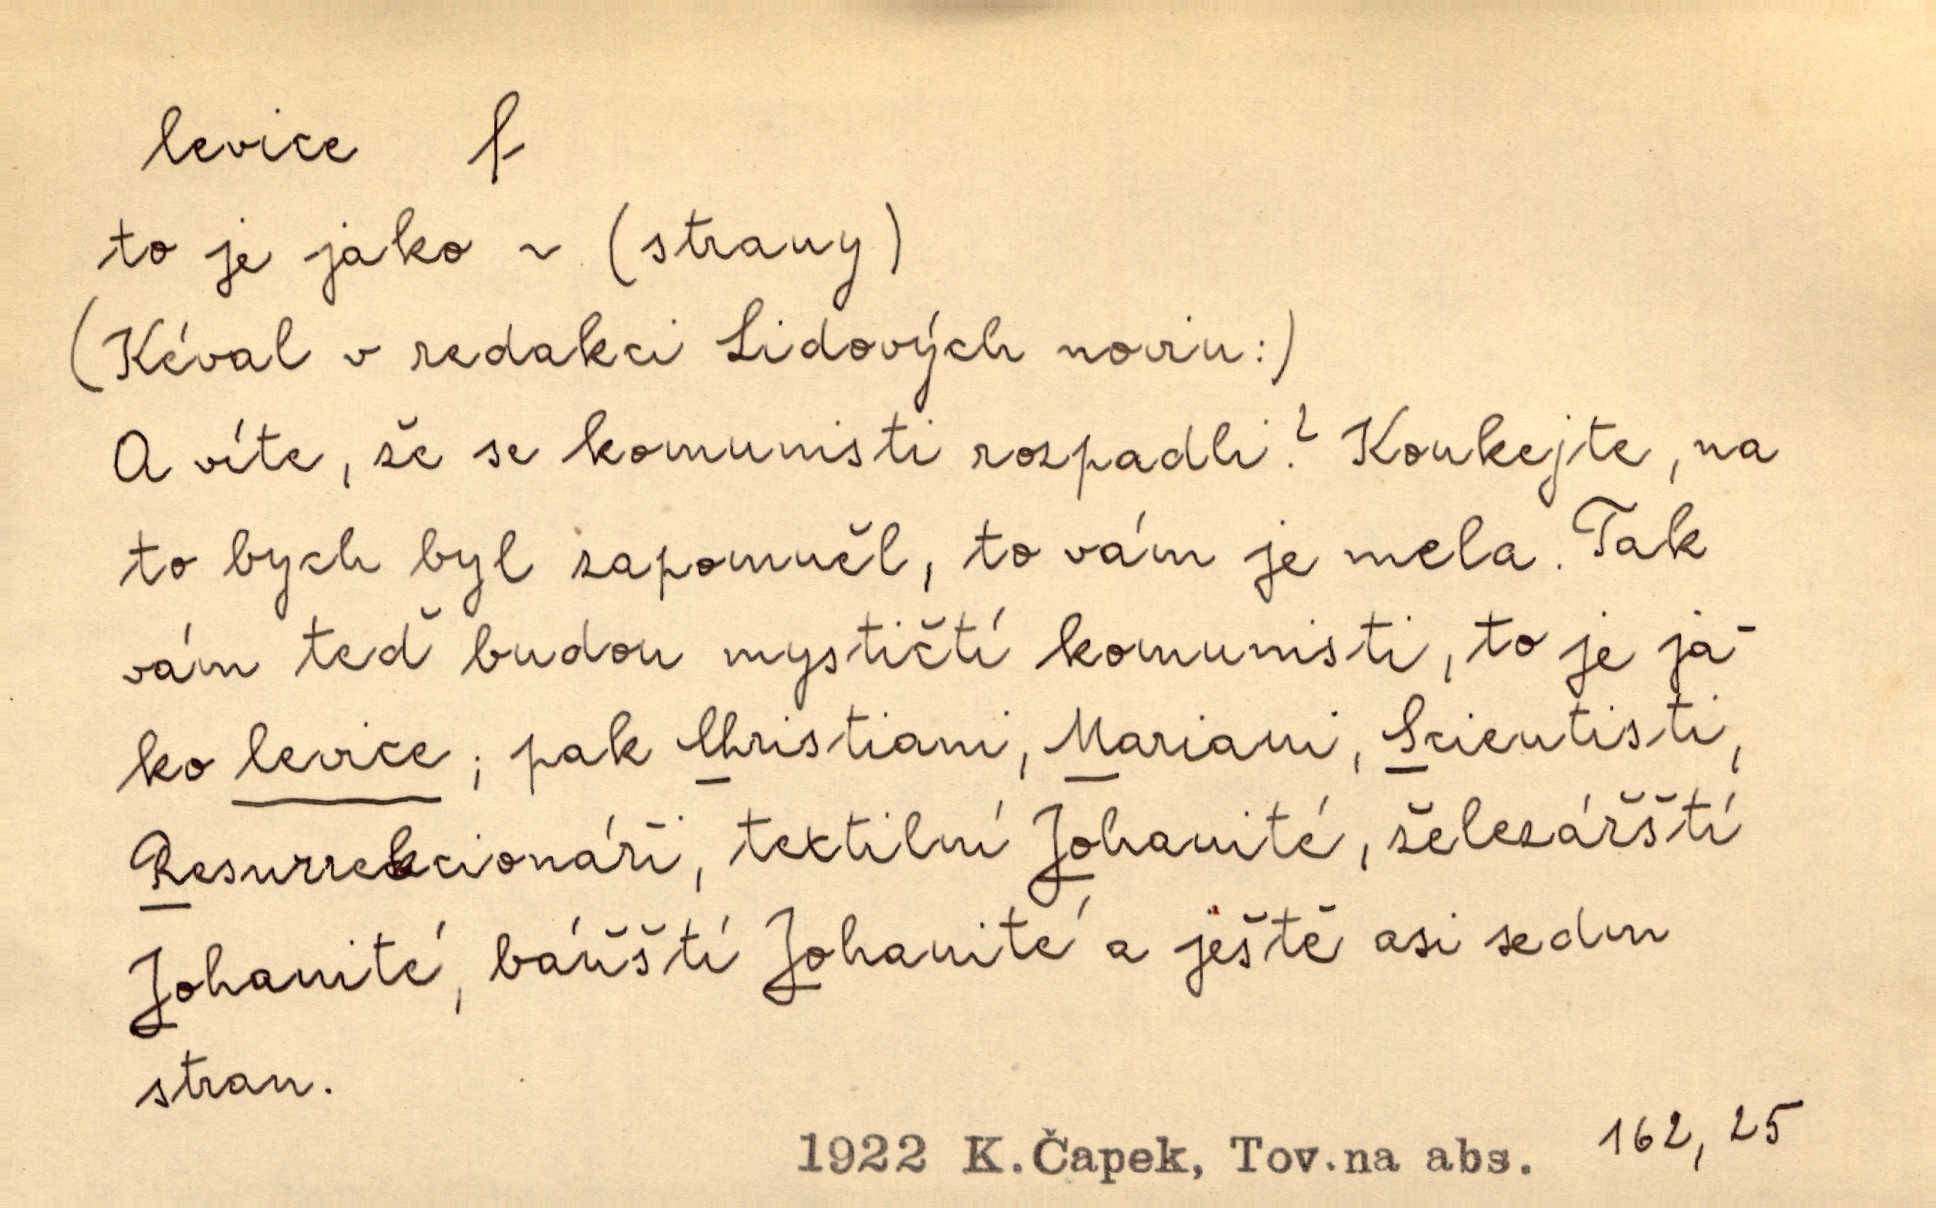 levice f
to je jako ~ (strany)
(Kéval v redakci Lidových novin:)
A víte, že se komunisti rozpadli? Koukejte, na
to bych byl zapomněl, to vám je mela. Tak
vám teď budou mystičtí komunisti, to je ja-
ko levice; pak Christiani, Mariani, Scientisti,
Resurrekcionáři, textilní Johanité, železářští
Johanité, báňští Johanité a ještě asi sedm
stran.
1922 K.Čapek, Tov.na abs. 162, 25